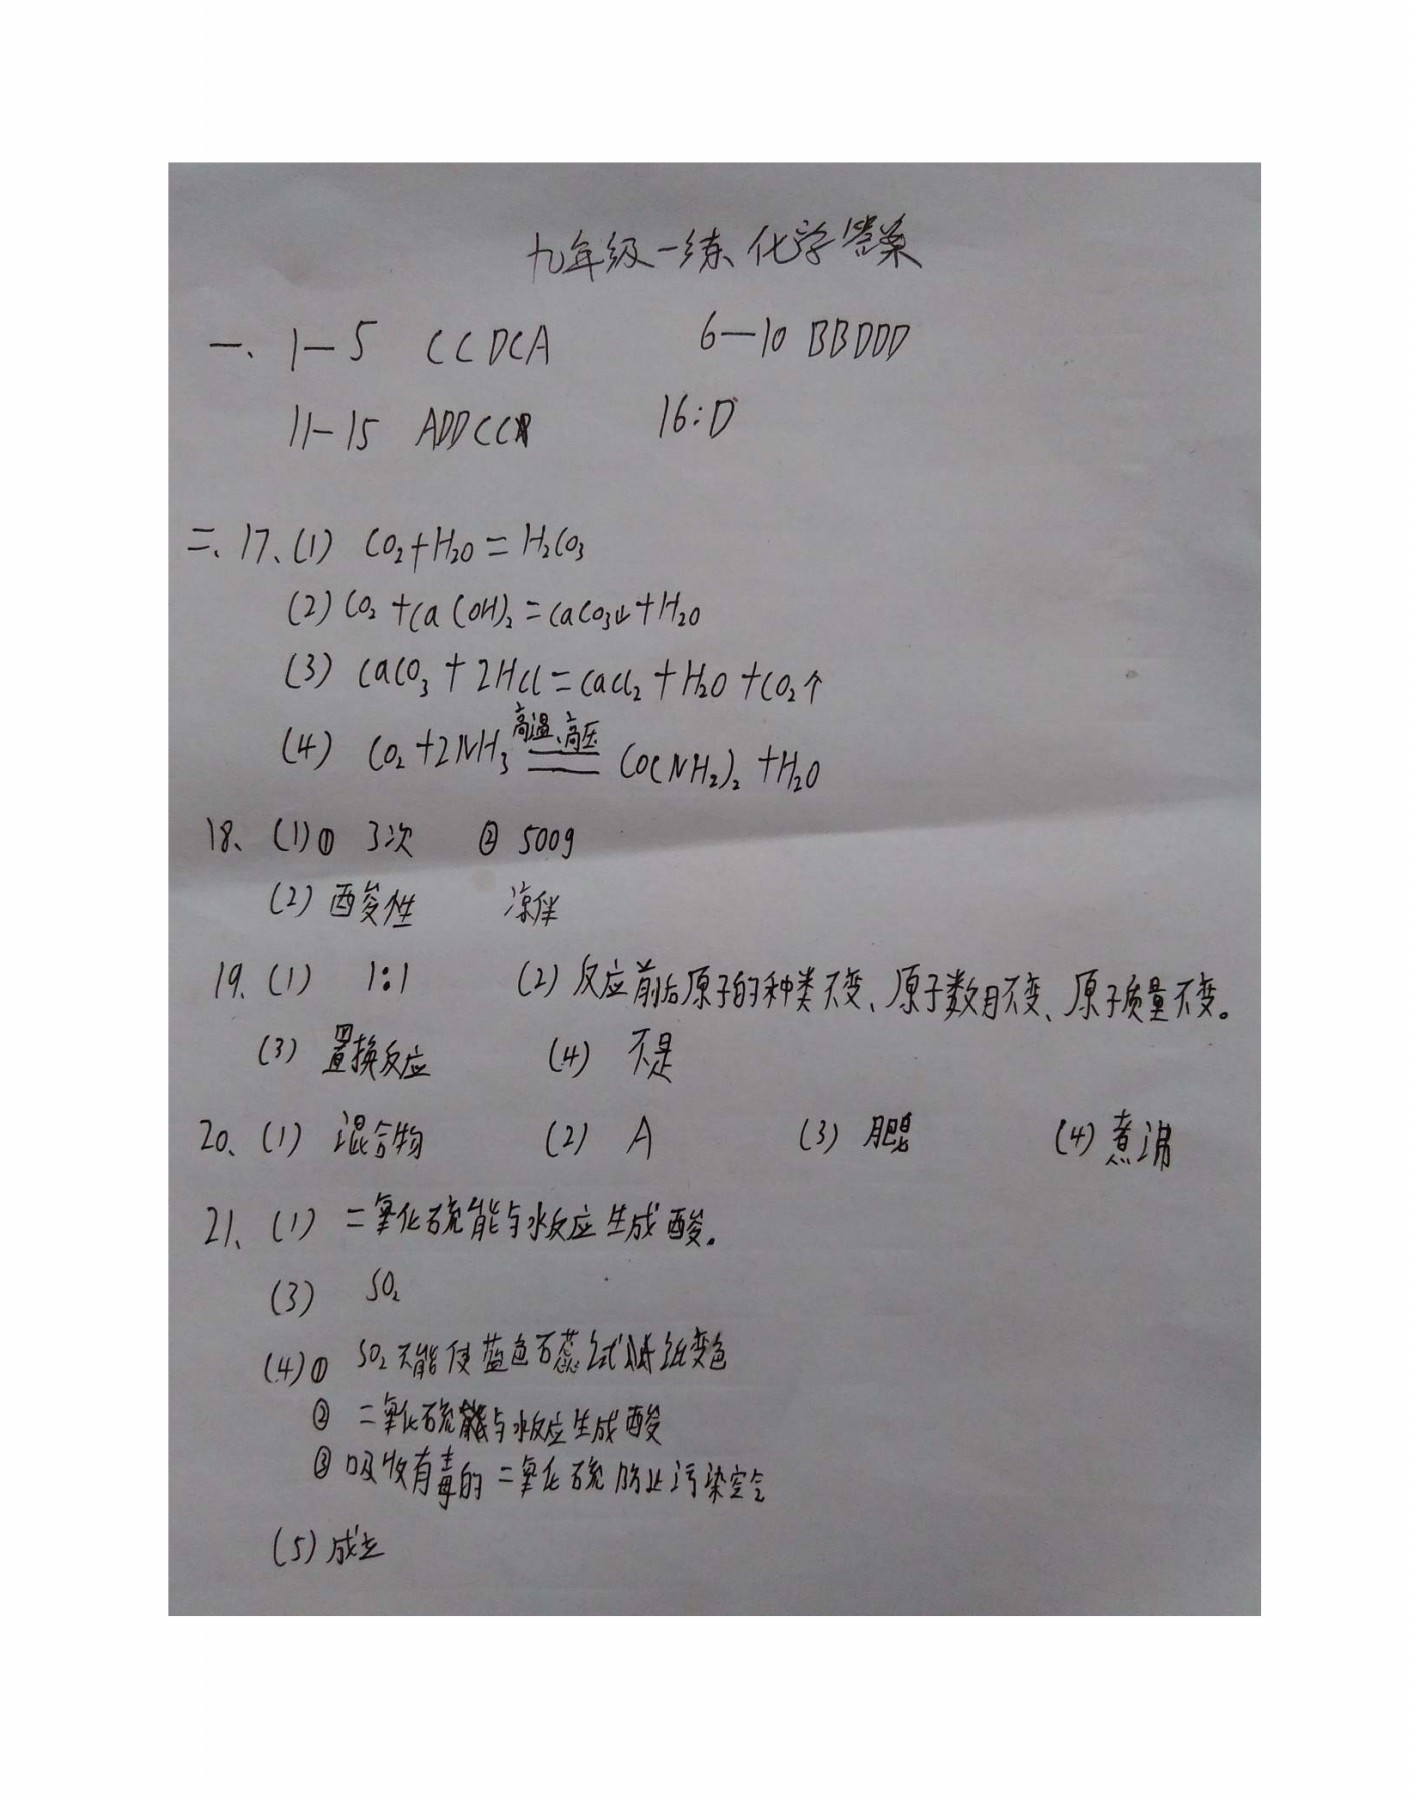 九年级一练 化学答案
一、1—5 CCDCA 6—10 BBDDD
11—15 ADDCC 16:D
二、17、(1) CO₂+H₂O=H₂CO₃
(2) CO₂+Ca(OH)₂=CaCO₃↓+H₂O
(3) CaCO₃+2HCl=CaCl₂+H₂O+CO₂↑
(4) CO₂+2NH₃ 高温、高压 == CO(NH₂)₂+H₂O
18、(1)① 3次 ② 500g
(2) 酸性 凉伴
19、(1) 1:1 (2) 反应前后原子的种类不变、原子数目不变、原子质量不变。
(3) 置换反应 (4) 不是
20、(1) 混合物 (2) A (3) 肥皂 (4) 煮沸
21、(1) 二氧化硫能与水反应生成酸。
(3) SO₂
(4)① SO₂不能使蓝色石蕊试纸变色
② 二氧化硫能与水反应生成酸
③ 吸收有毒的二氧化硫防止污染空气
(5) 成立